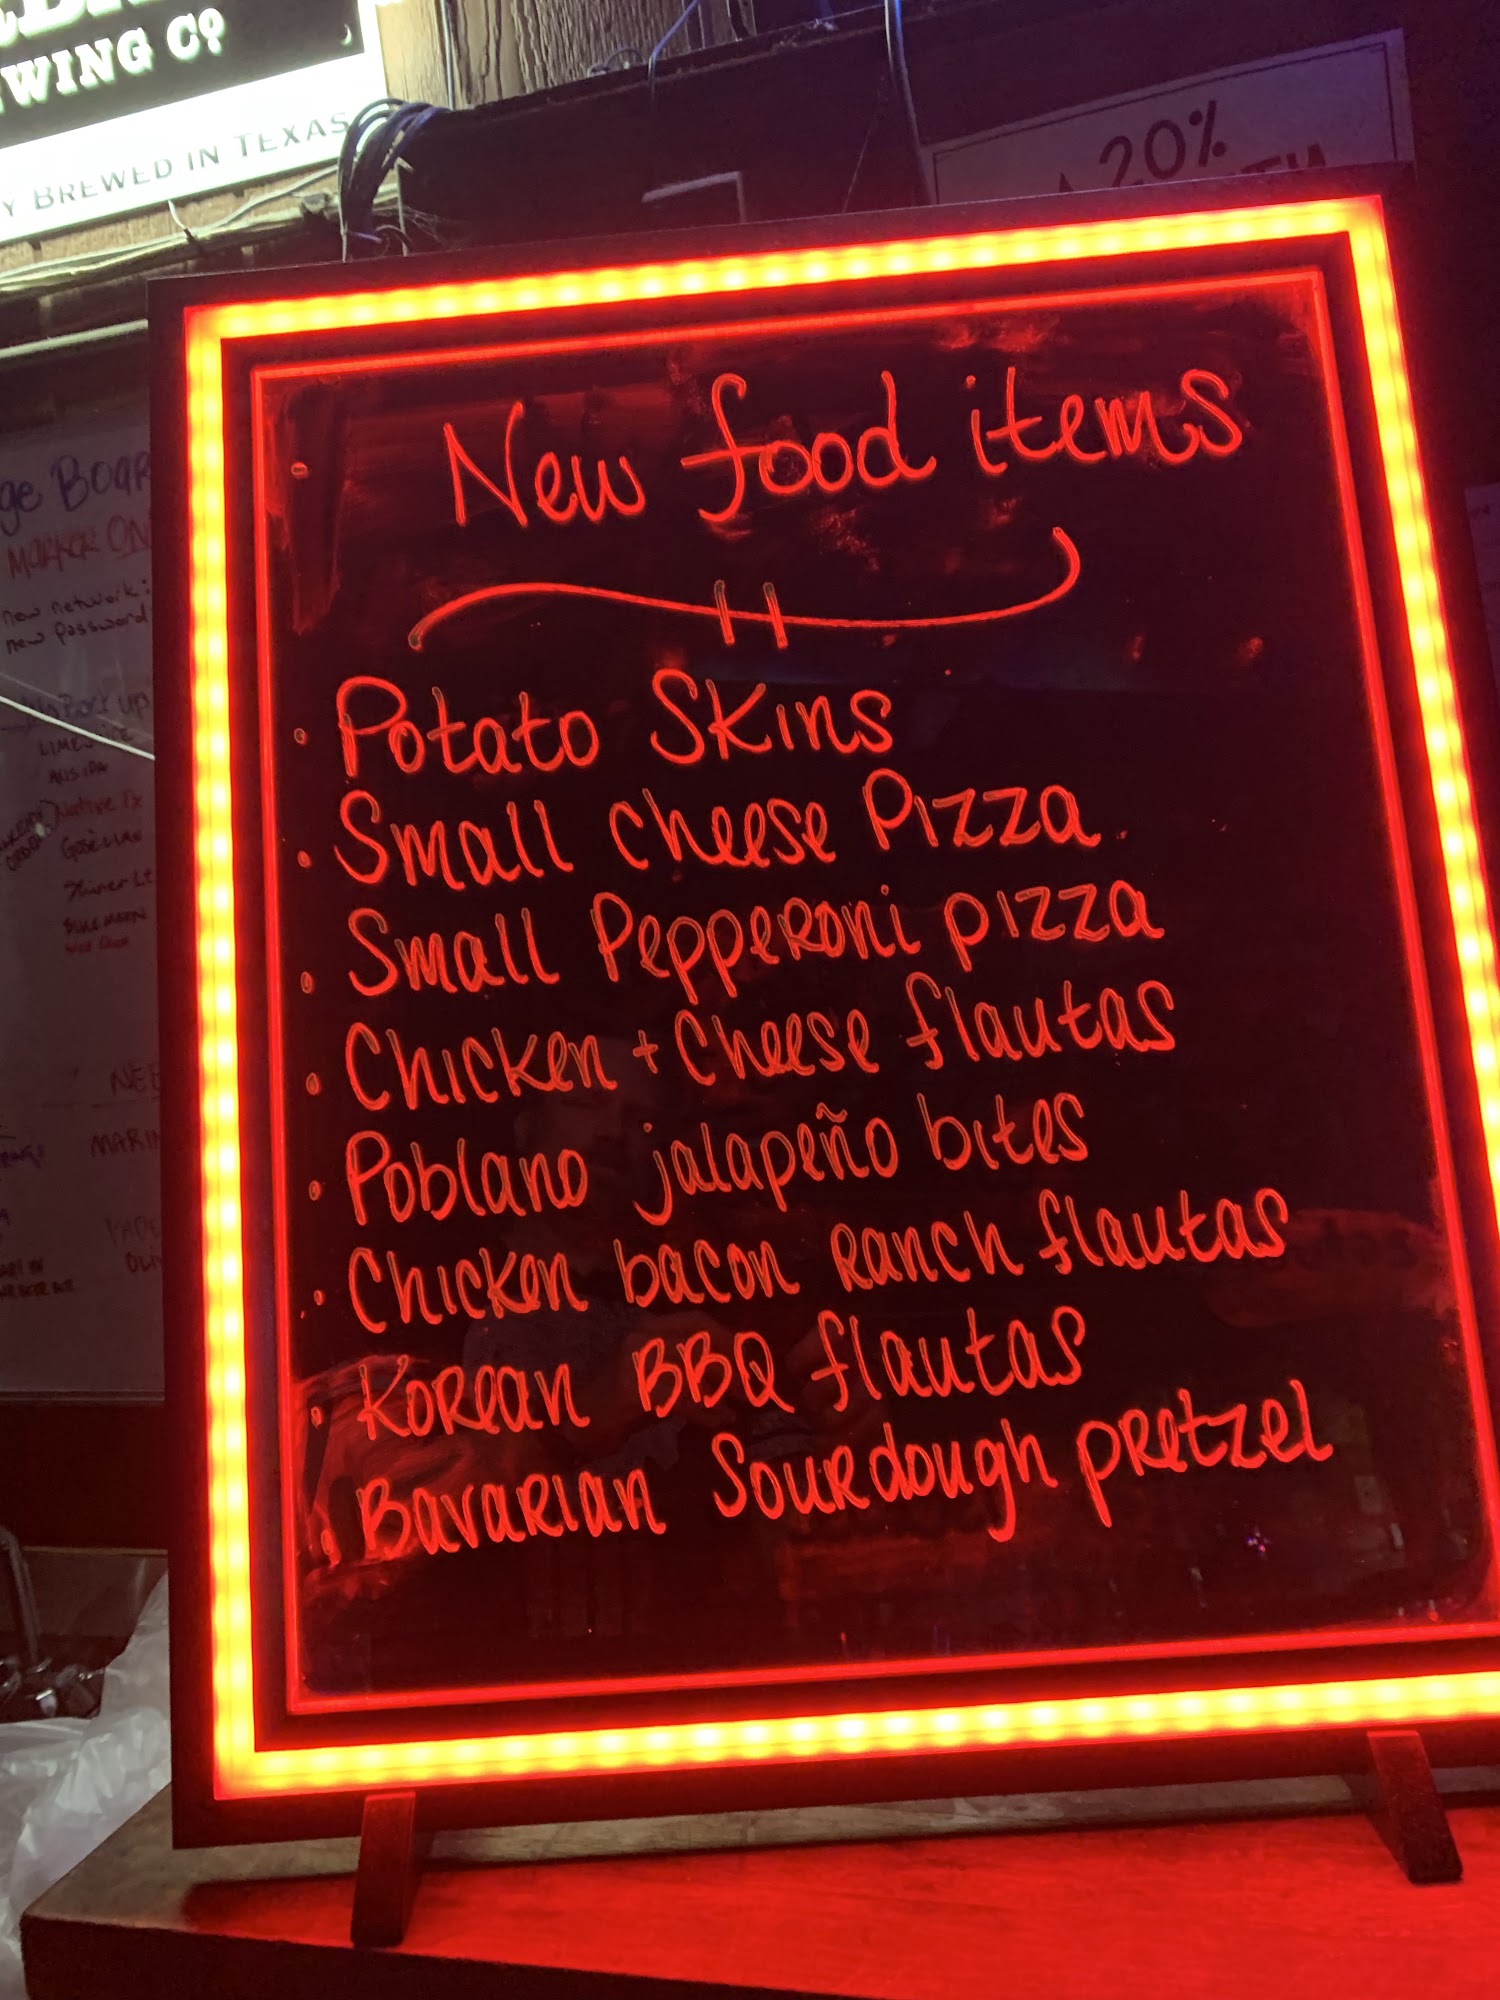 WING CO
Y BREWED IN TEXAS
20%
New food items
Potato Skins
Small Cheese Pizza
Small Pepperoni pizza
Chicken + Cheese flautas
Poblano jalapeño bites
Chicken bacon Ranch flautas
Korean BBQ flautas
Bavarian Sourdough pretzel
ge BOAR
MARKER ON
new network:
new password